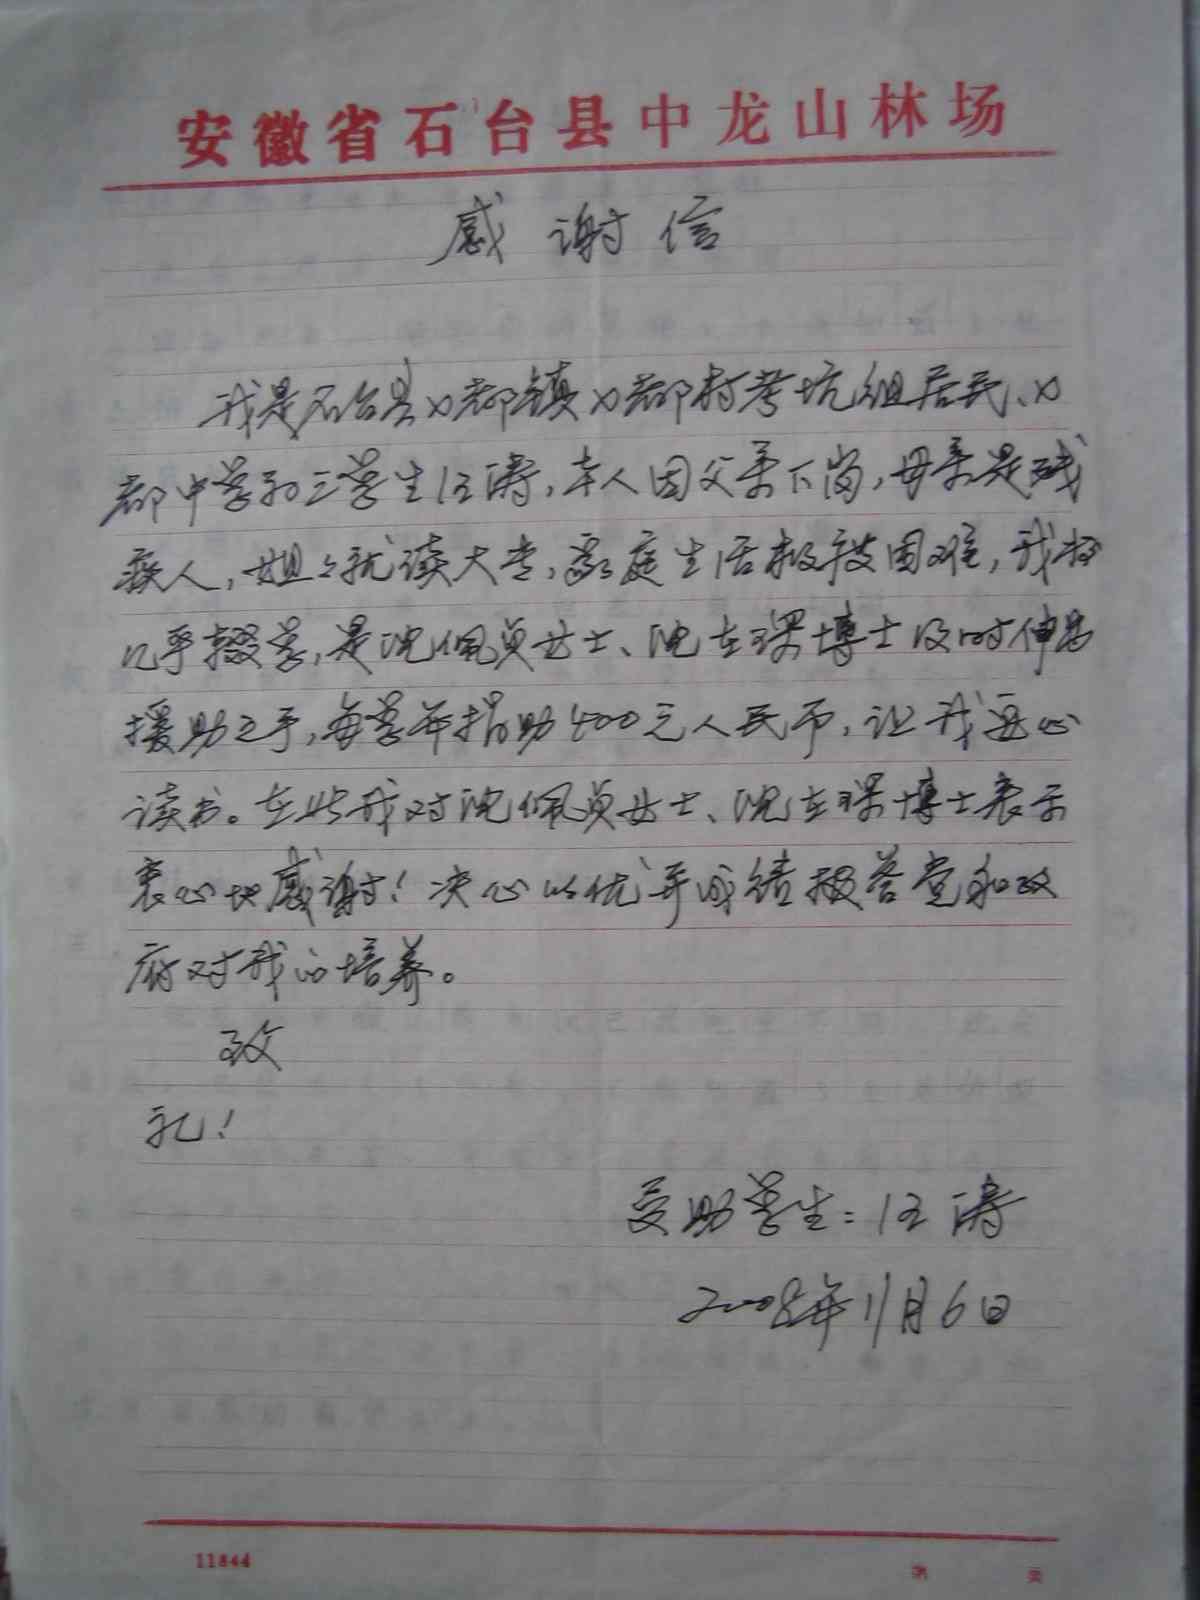 安徽省石台县中龙山林场
感谢信
我是石台县七都镇七都村考坑组居民、七
都中学初三学生汪涛，本人因父亲下岗，母亲是残
疾人，姐々就读大专，家庭生活极度困难，我将
几乎辍学，是沈佩贞女士、沈在琛博士及时伸出
援助之手，每学年捐助400元人民币，让我安心
读书。在此我对沈佩贞女士、沈在琛博士表示
衷心地感谢！决心以优异成绩报答党和政
府对我的培养。
致
礼！
受助学生：汪涛
2008年11月6日
11844
第 页